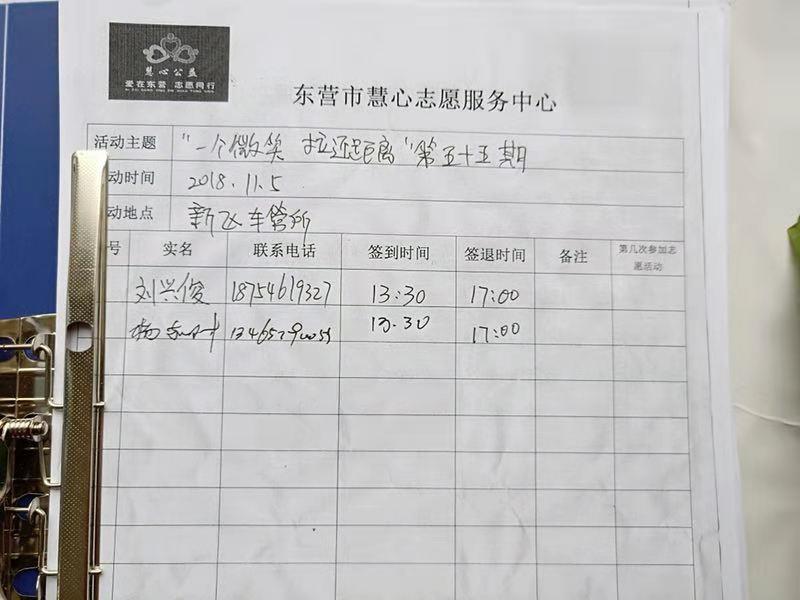 慧心公益
爱在东营 志愿同行
东营市慧心志愿服务中心
活动主题 "一个微笑 拉近距离"第五十五期
动时间 2018.11.5
动地点 新飞车管所
号 实名 联系电话 签到时间 签退时间 备注 第几次参加志愿活动
刘兴俊 18754619327 13:30 17:00
杨 13.30 17:00